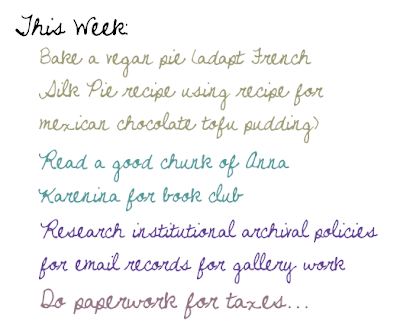 This Week:
Bake a vegan pie (adapt French
Silk Pie recipe using recipe for
mexican chocolate tofu pudding)
Read a good chunk of Anna
Karenina for book club
Research institutional archival policies
for email records for gallery work
Do paperwork for taxes...